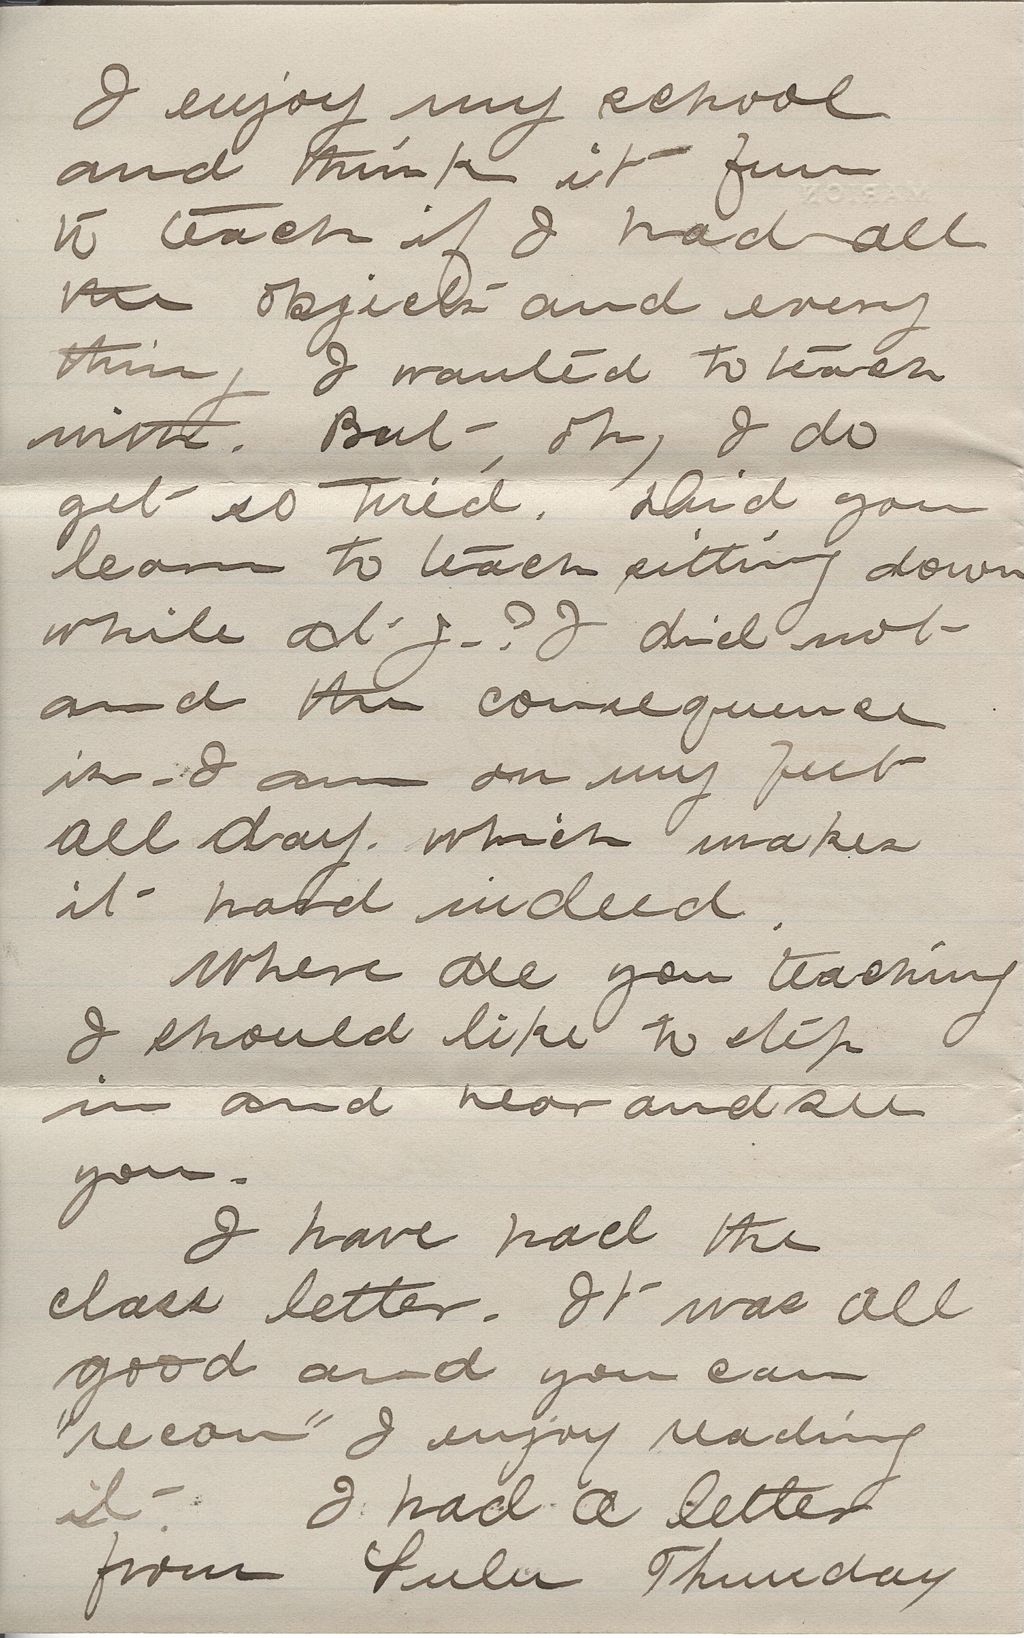 I enjoy my school
and think it fun
to teach if I had all
the objects and every
thing I wanted to teach
with. But, oh, I do
get so tired. Did you
learn to teach sitting down
while at J-? I did not
and the consequence
is - I am on my feet
all day. which makes
it hard indeed.
Where are you teaching
I should like to step
in and hear and see
you.
I have had the
class letter. It was all
good and you can
"recon" I enjoy reading
it. I had a letter
from Lulu Thursday
MARION